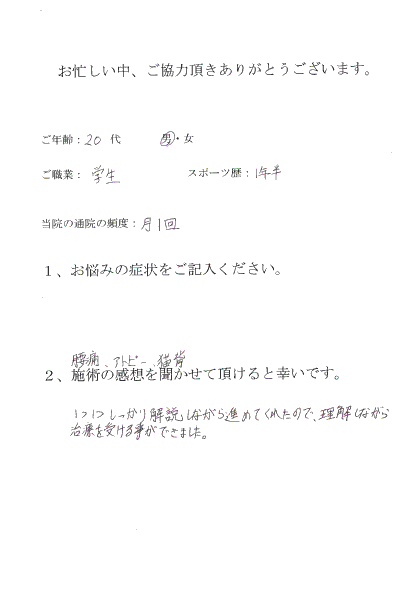 お忙しい中、ご協力頂きありがとうございます。
ご年齢：20 代　男・女
ご職業：学生　スポーツ歴：1年半
当院の通院の頻度：月1回
１、お悩みの症状をご記入ください。
腰痛、アトピー、猫背
２、施術の感想を聞かせて頂けると幸いです。
1つ1つしっかり解説しながら進めてくれたので、理解しながら
治療を受ける事ができました。